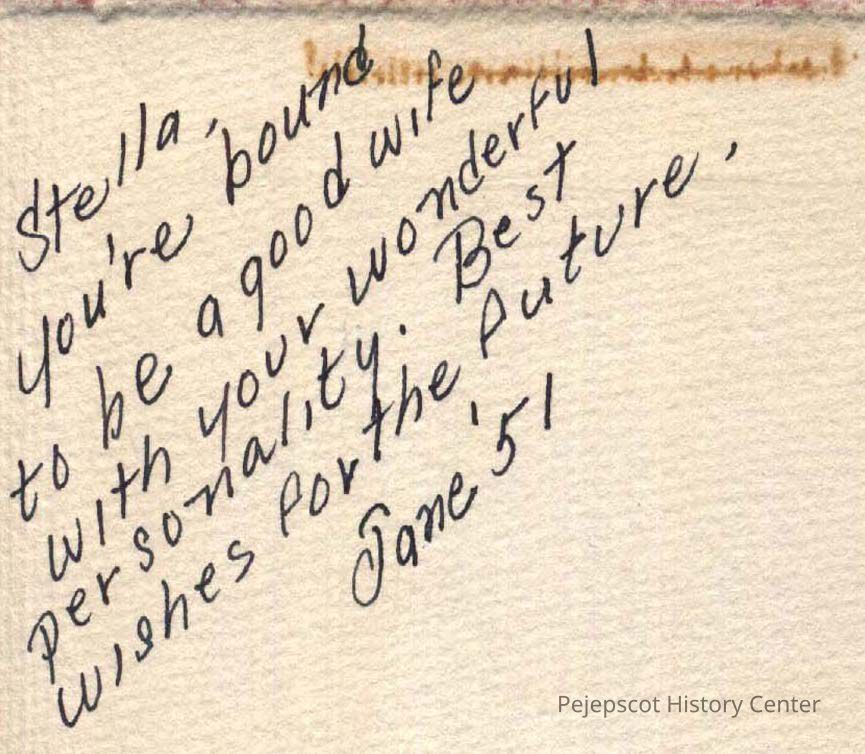 Stella,
you're bound
to be a good wife
with your wonderful
personality. Best
wishes for the future,
Jane '51
Pejepscot History Center